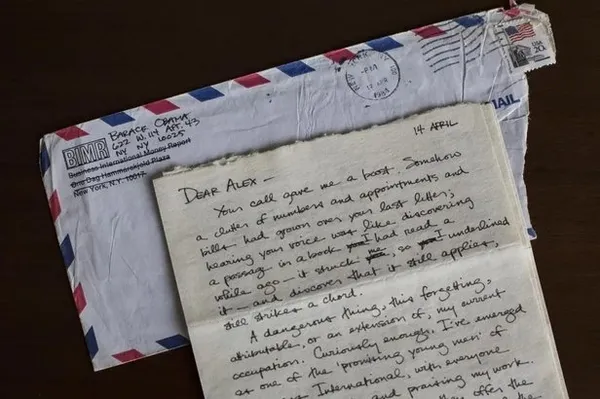 BARACK OBAMA
622 W. 114 APT. 43
NY NY 10025
BIMR
Business International Money Report
One Dag Hammarskjold Plaza
New York, N.Y. 10017
NEW YORK, NY
PM
17 APR
1984
USA
20c
MAIL
14 APRIL
DEAR ALEX —
Your call gave me a boost. Somehow
a clutter of numbers and appointments and
bills had grown over your last letter;
hearing your voice was like discovering
a passage in a book you I had read a
while ago — it struck you me, so you I underlined
it — and discover that it still applies,
still strikes a chord.
A dangerous thing, this forgetting,
attributable, or an extension of, my current
occupation. Curiously enough, I've emerged
as one of the "promising young men" of
International, with everyone
and praising my work.
offer the
the